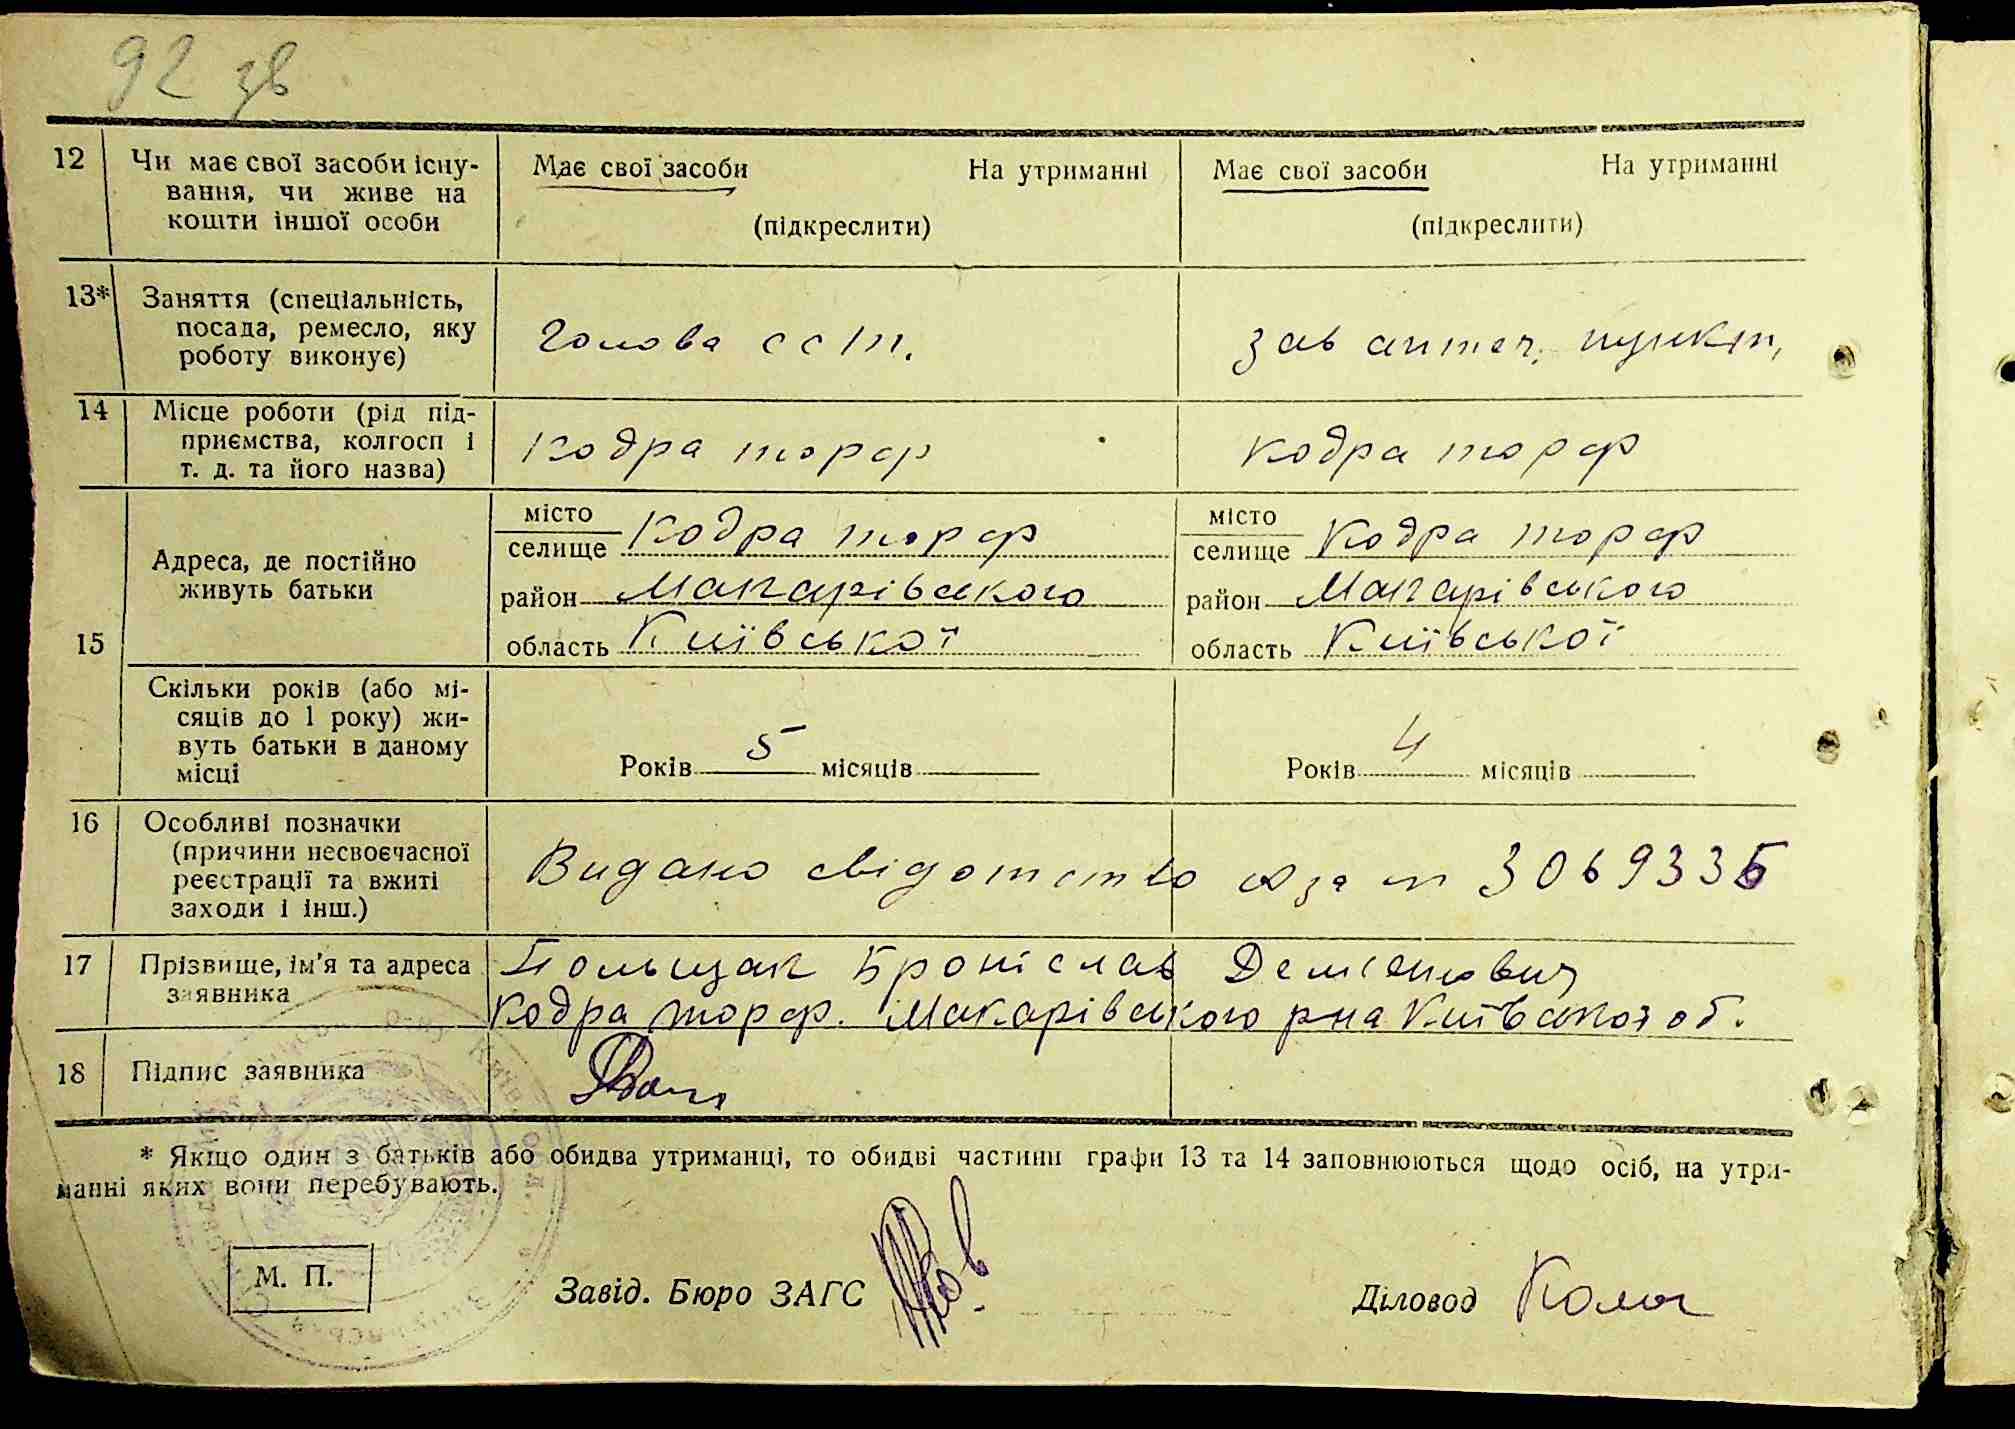 92 зв
12 Чи має свої засоби існу-
вання, чи живе на
кошти іншої особи
Має свої засоби На утриманні
(підкреслити)
Має свої засоби На утриманні
(підкреслити)
13* Заняття (спеціальність,
посада, ремесло, яку
роботу виконує)
Голова ССТ.
Зав аптеч. пункт,
14 Місце роботи (рід під-
приємства, колгосп і
т. д. та його назва)
Кодра торф
Кодра торф
15
Адреса, де постійно
живуть батьки
місто
селище Кодра торф
район Макарівського
область Київської
місто
селище Кодра торф
район Макарівського
область Київської
Скільки років (або мі-
сяців до 1 року) жи-
вуть батьки в даному
місці
Років 5 місяців
Років 4 місяців
16 Особливі позначки
(причини несвоєчасної
реєстрації та вжиті
заходи і інш.)
Видано свідотство за 3069335
17 Прізвище, ім'я та адреса
заявника
Польщак Броніслав
Кодра торф. Макарівського рна Київської об.
18 Підпис заявника
* Якщо один з батьків або обидва утриманці, то обидві частини графи 13 та 14 заповнюються щодо осіб, на утри-
манні яких вони перебувають.
М. П.
Завід. Бюро ЗАГС
Діловод